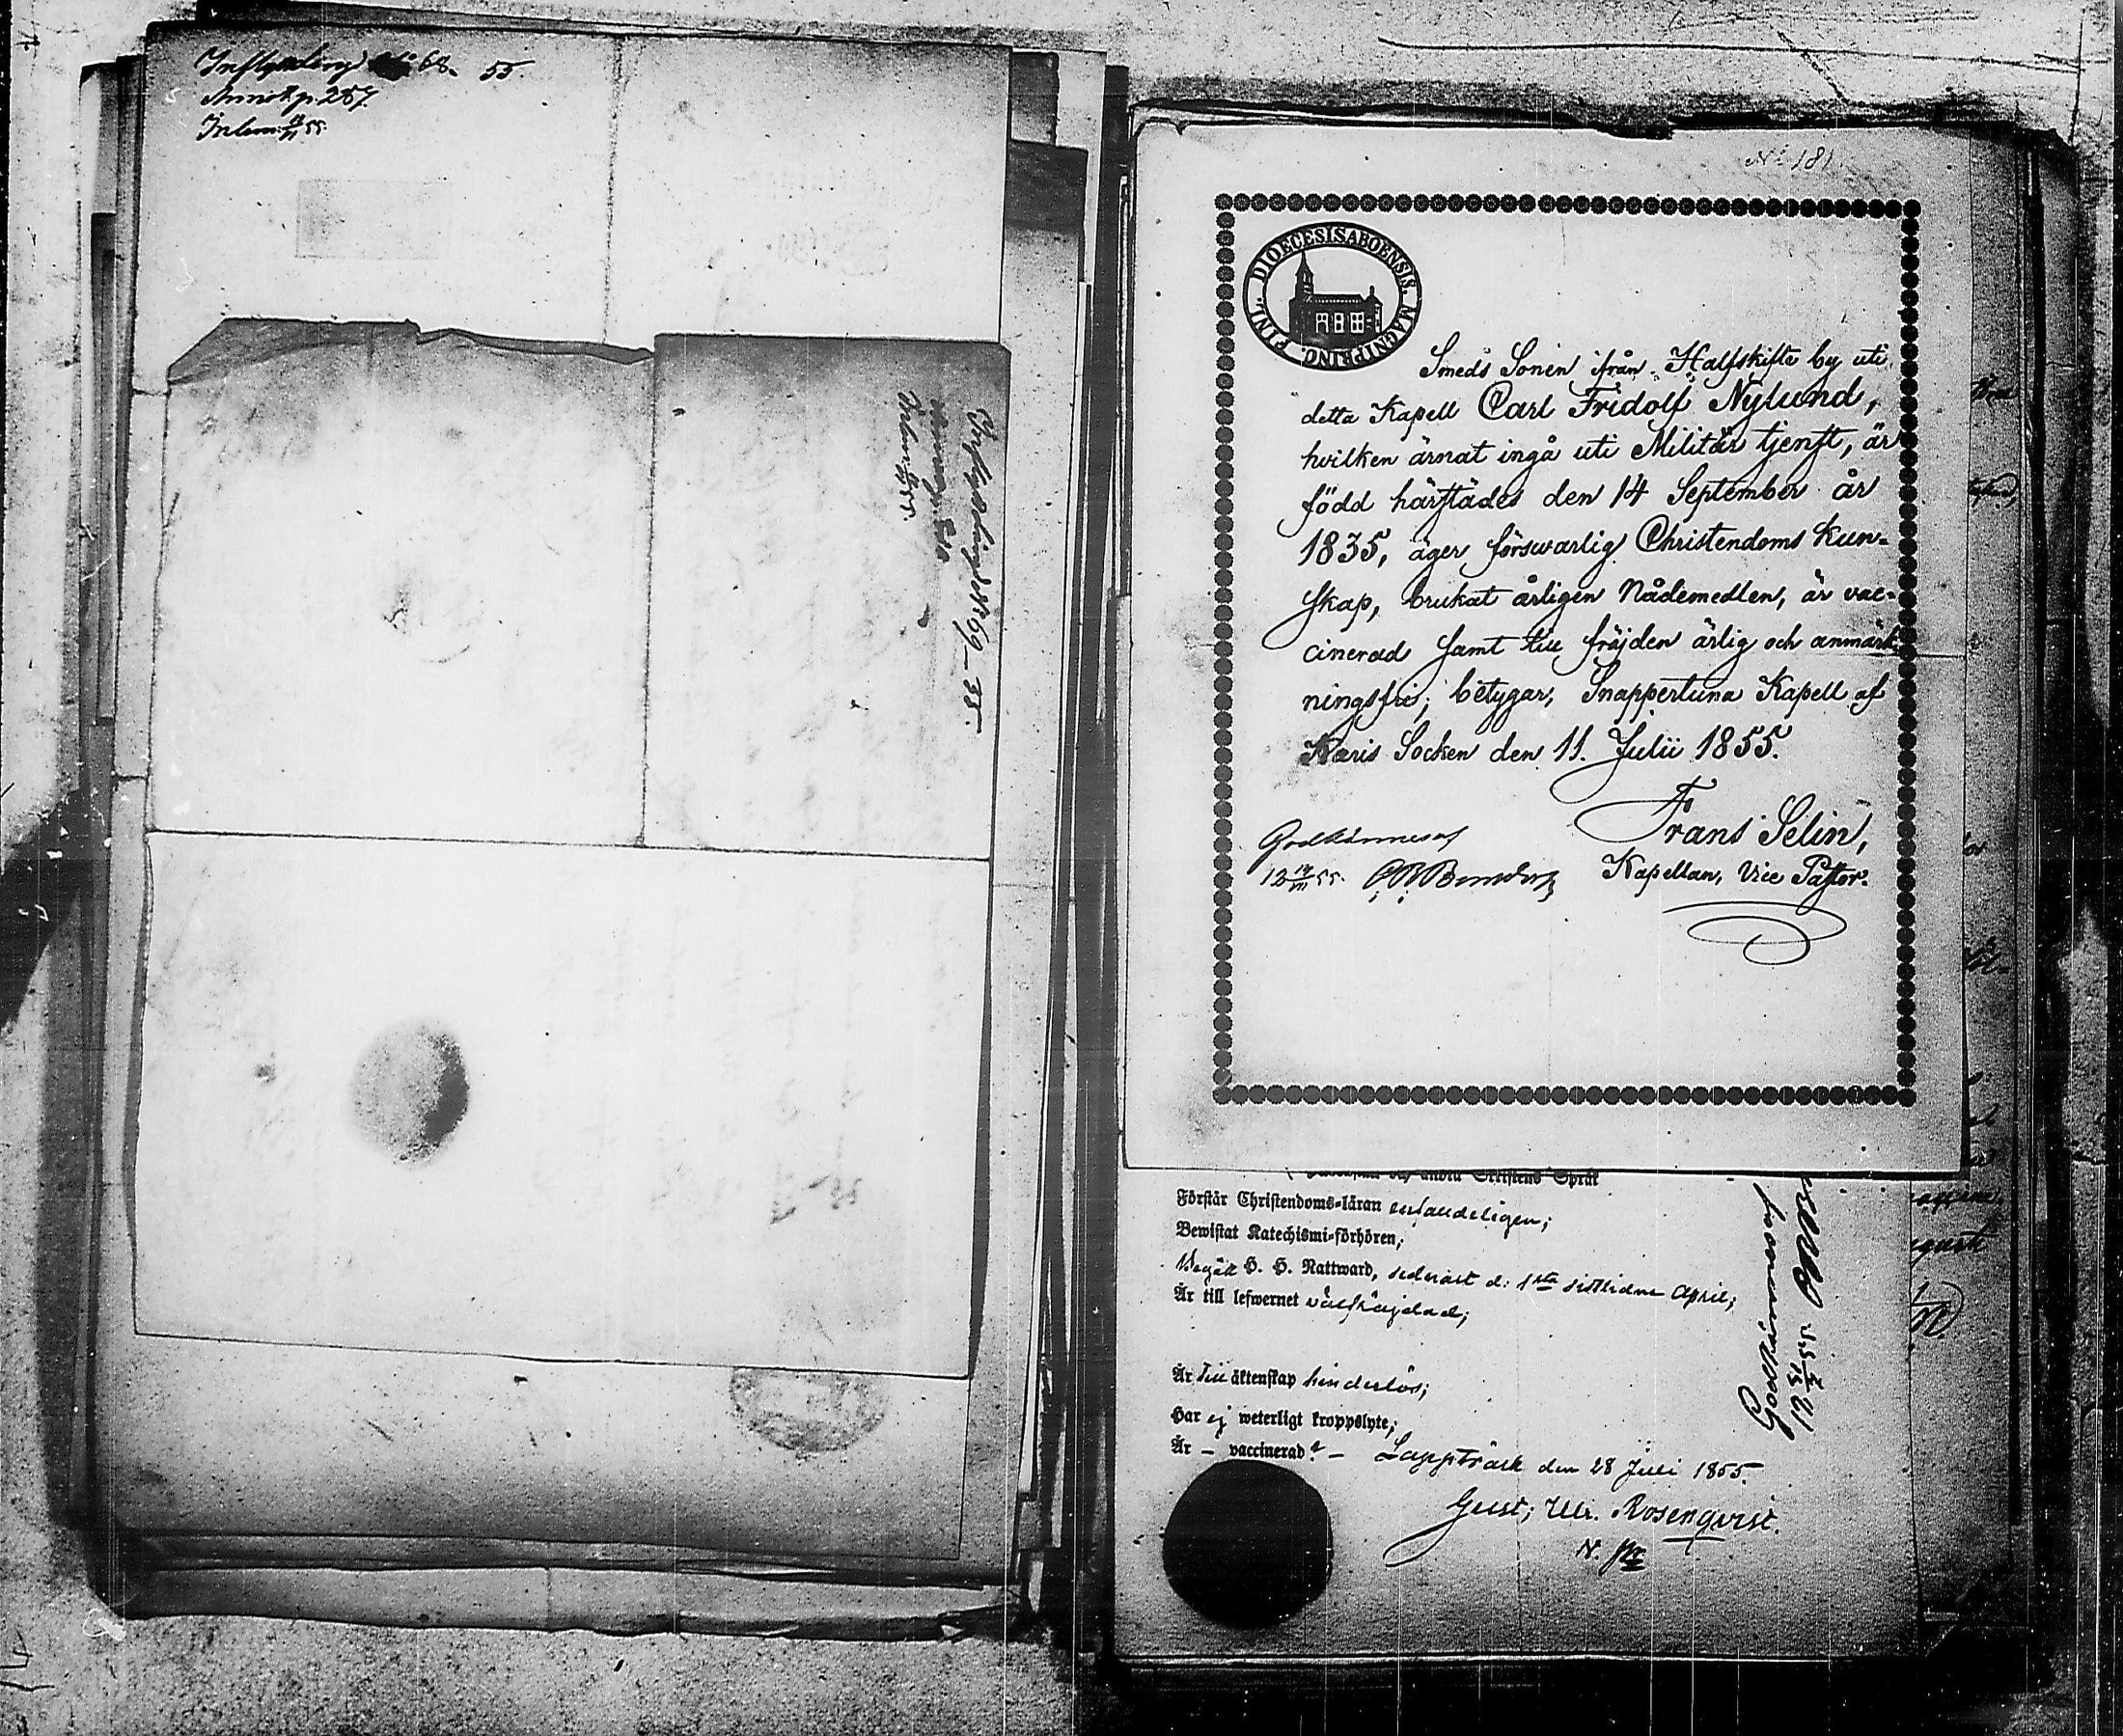 Inflyttning N:o 68. 55.
Annot. p. 287
Inlem. 55.
Inflyttning N:o 69 – 55.
N:o 181
DIOECESIS ABOENSIS. MAGNI PRINC. FINL.
Smeds Sonen ifrån Halfskifte by uti
detta Kapell Carl Fridolf Nylund,
hvilken ärnat ingå uti Militär tjenst, är
född härstädes den 14 September år
1835, äger förswarlig Christendoms kun-
skap, brukat årligen Nådemedlen, är vac-
cinerad samt till fräjden ärlig och anmärk-
ningsfri; betygar, Snappertuna Kapell af
Karis Socken den 11. Julii 1855.
Frans Selin,
Kapellan, Vice Pastor.
Godkännes af
12 55.
Förstår Christendoms-läran enfaldeligen;
Bewistat Katechismi-förhören;
Begått H. H. Nattward, sednast d: 1sta sistlidne April;
Är till lefwernet välfräjdad;
Är till äktenskap hinderlös;
Har ej weterligt kroppslyte;
Är – vaccinerad. – Lappträsk den 28 Juli 1855.
Gust; Ulr. Rosenqvist.
Godkännes af
12 55